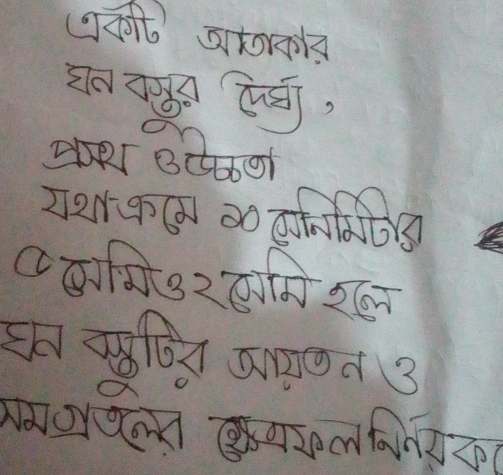 একটি আতাকার
ঘন বস্তুর দৈর্ঘ্য,
প্রসথ ও উচ্চতা
যথাক্রমে ১০ সেনিমিটার
৫ সেমি ও ২ সেমি হলে
ঘন বস্তুটির আয়তন ও
সমগ্রতলের ক্ষেত্রফল নির্ণয় কর